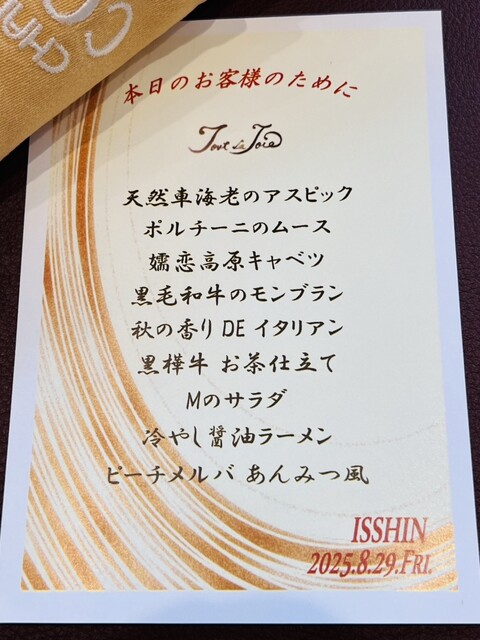 本日のお客様のために
Tout La Joie
天然車海老のアスピック
ポルチーニのムース
嬬恋高原キャベツ
黒毛和牛のモンブラン
秋の香り DE イタリアン
黒樺牛 お茶仕立て
Mのサラダ
冷やし醤油ラーメン
ピーチメルバ あんみつ風
ISSHIN
2025.8.29.FRI.